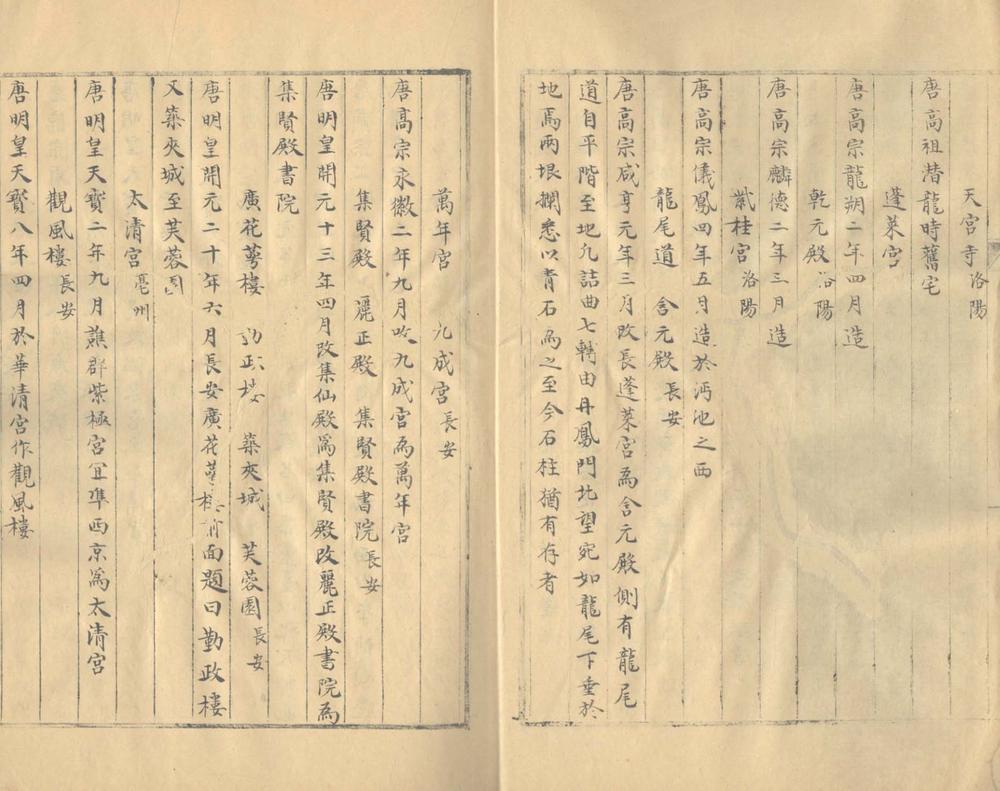 天宮寺 洛陽
唐高祖潛龍時舊宅
蓬萊宮
唐高宗龍朔二年四月造
乾元殿 洛陽
唐高宗麟德二年三月造
紫桂宮 洛陽
唐高宗儀鳳四年五月造於沔池之西
龍尾道 含元殿 長安
唐高宗咸亨元年三月改長蓬萊宮為含元殿側有龍尾
道自平階至地凢詰曲七轉由丹鳳門北望宛如龍尾下垂於
地焉兩垠欄悉以青石為之至今石柱猶有存者
萬年宮 九成宮 長安
唐高宗永徽二年九月改九成宮為萬年宮
集賢殿 麗正殿 集賢殿書院 長安
唐明皇開元十三年四月改集仙殿為集賢殿改麗正殿書院為
集賢殿書院
廣花萼樓 勤政樓 築夾城 芙蓉園 長安
唐明皇開元二十年六月長安廣花萼樓前面題曰勤政樓
又築夾城至芙蓉園
太清宮 亳州
唐明皇天寳二年九月譙群紫極宮宜準西京為太清宮
觀風樓 長安
唐明皇天寳八年四月於華清宮作觀風樓